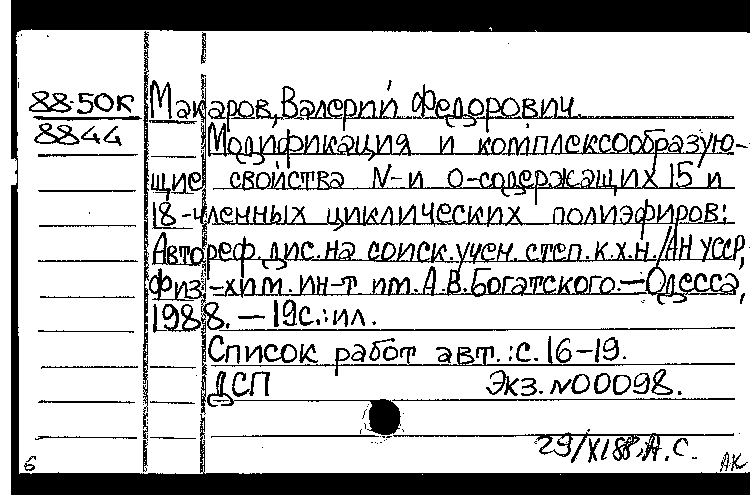 88-50к Макаров, Валерий Федорович.
8844 Модификация и комплексообразую-
щие свойства N- и О-содержащих 15 и
18-членных циклических полиэфиров:
Автореф. дис. на соиск. учен. степ. к.х.н. /АН УССР,
Физ.-хим. ин-т им. А.В. Богатского. — Одесса,
1988. — 19с.: ил.
Список работ авт.: с. 16-19.
ДСП Экз. N00098.
29/XI88. А.С.
6 АК